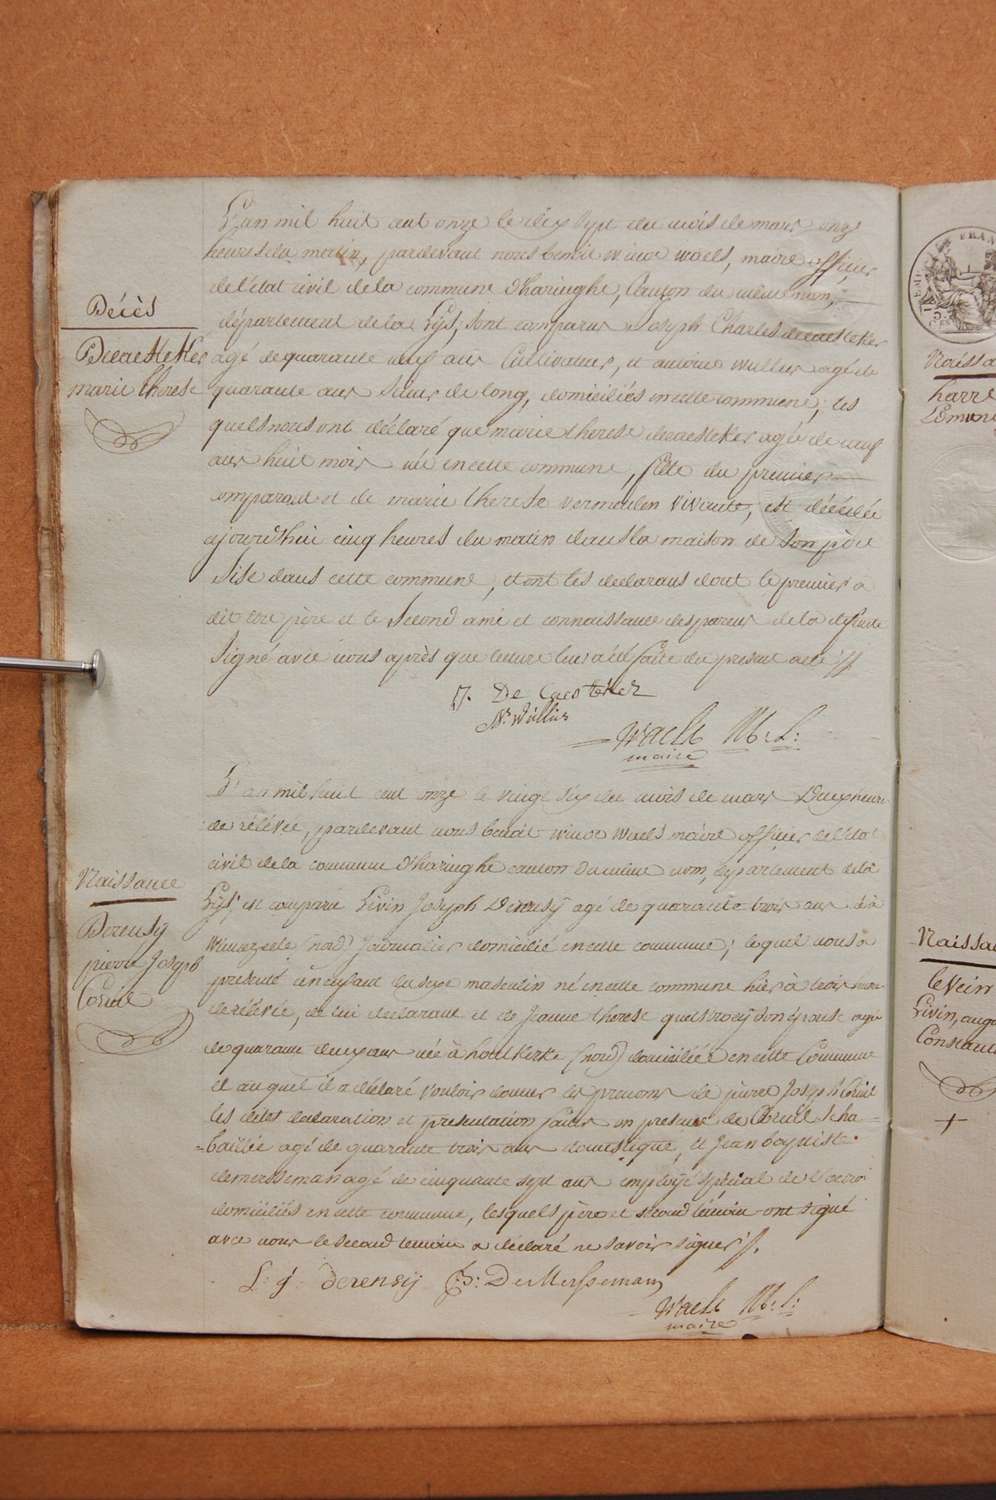 L'an mil huit cent onze le dix sept du mois de mars onze
heures du matin, pardevant nous benoit winoc waels, maire officier
de l'état civil de la commune d'haringhe, Canton du même nom,
Décès
département de la Lys, sont comparus Joseph Charles decaesteker
Decaesteker
agé de quarante neuf ans Cultivateur, et antoine wullus agé de
marie therese
quarante ans de long, domiciliés en cette commune, les
quels nous ont déclaré que marie therese decaesteker agée de neuf
ans huit mois née en cette commune, fille du premier
comparant et de marie therese vermeulen vivante, est décédée
ajourd'hui cinq heures du matin dans la maison de son père
sise dans cette commune, et ont les declarans dont le premier a
dit être père et le second ami et connaissance des parens de la defunte
signé avec nous après que lecture leur a été faite du present acte
J. De Caesteker
Wullus
Waels M. L.
maire
L'an mil huit cent onze le vingt six du mois de mars Deux heures
de rélévée, pardevant nous benoit winoc Waels maire officier de l'état
civil de la commune d'haringhe canton du même nom, département de la
Naissance
Lys, est comparu Livin Joseph Derensy agé de quarante trois ans né à
Derensy
Winnezeele (nord) Journalier domicilié en cette commune, lequel nous a
pierre Joseph
presenté un enfant du sexe masculin né en cette commune hier à trois heures
Coriil
de rélévée, de lui declarant et de Jeanne therese son épouse agée
de quarante deux ans née à houtkerke (nord) domiciliée en cette Commune
et auquel il a déclaré vouloir donner les prenoms de pierre Joseph
les dites declaration et presentation faites en presence de Scha-
-baillie agé de quarante trois ans domestique, et Jean baptiste
demersseman agé de cinquante sept ans employé spécial de l'octroi
domiciliés en cette commune, lesquels père et second témoin ont signé
avec nous le second temoin a déclaré ne savoir signer
L. J. Derensÿ J: B: DeMersseman
Waels M. L.
maire
FRAN
Naissa
harre
Naissa
leVein
Livin, augu
Constant